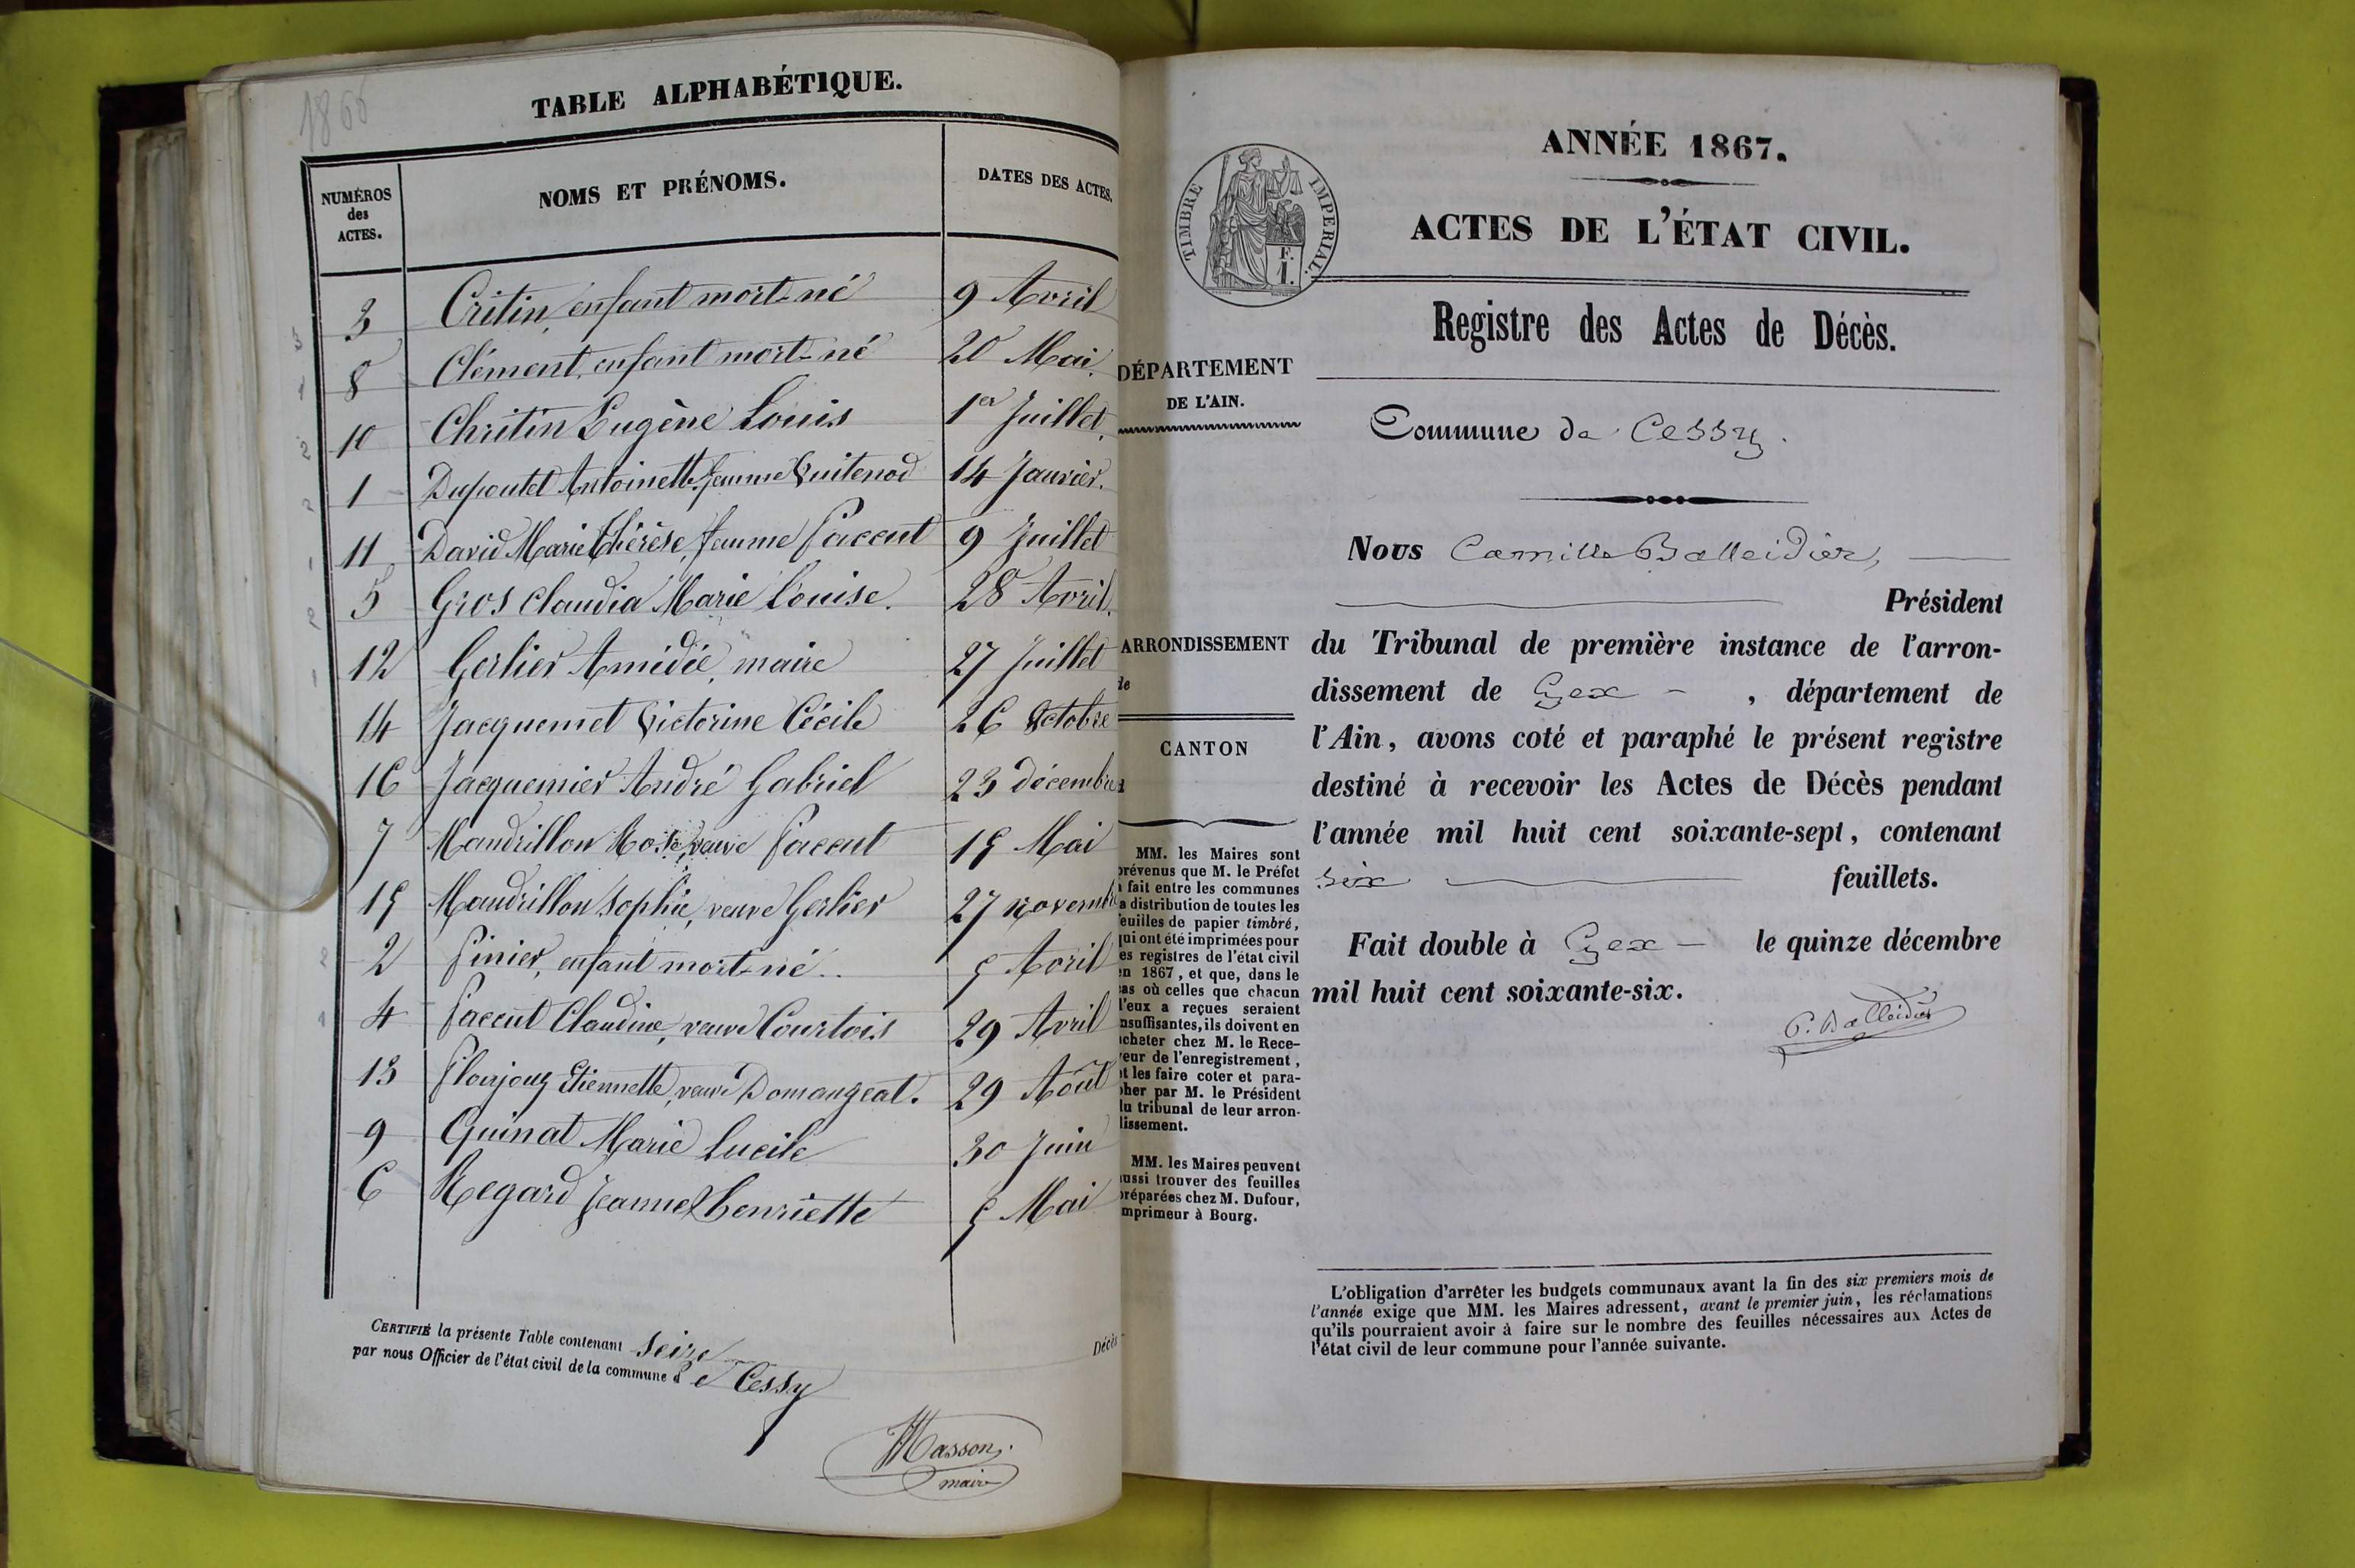 1866
TABLE ALPHABÉTIQUE.
NUMÉROS des ACTES.
NOMS ET PRÉNOMS.
DATES DES ACTES.
3 Critin, enfant mort-né 9 Avril
8 Clément, enfant mort-né 20 Mai.
10 Chritin Eugène Louis 1er Juillet.
1 Dupoutet Antoinette, femme Vuitenod 14 Janvier.
11 David Marie Thérèse, femme Paccut 9 Juillet
5 Gros Claudia Marie Louise. 28 Avril.
12 Gerlier Amédée, maire 27 Juillet
14 Jacquemet Victorine Cécile 26 Octobre
16 Jacquemier André Gabriel 23 décembre
7 Mandrillon Rose, veuve Paccut 15 Mai
15 Mandrillon Sophie, veuve Gerlier 27 novemb
2 Pinier, enfant mort-né.. 5 Avril
4 Paccut Claudine, veuve Courtois 29 Avril
13 Ploujoux Etiennette, veuve Domangeat. 29 Août
9 Quinat Marie Lucile 30 Juin
6 Regard Jeanne Henriette 5 Mai
CERTIFIÉ la présente Table contenant seize
par nous Officier de l'état civil de la commune de Cessy
Décès
Masson.
maire
ANNÉE 1867.
TIMBRE IMPÉRIAL.
F.
1.
ACTES DE L'ÉTAT CIVIL.
Registre des Actes de Décès.
DÉPARTEMENT
DE L'AIN.
Commune de Cessy.
Nous Camille Balleidier,
Président
ARRONDISSEMENT
de
du Tribunal de première instance de l'arron-
dissement de Gex - , département de
CANTON
l'Ain, avons coté et paraphé le présent registre
destiné à recevoir les Actes de Décès pendant
l'année mil huit cent soixante-sept, contenant
six feuillets.
Fait double à Gex - le quinze décembre
mil huit cent soixante-six.
C. Balleidier
MM. les Maires sont
prévenus que M. le Préfet
a fait entre les communes
la distribution de toutes les
feuilles de papier timbré,
qui ont été imprimées pour
les registres de l'état civil
en 1867, et que, dans le
cas où celles que chacun
d'eux a reçues seraient
insuffisantes, ils doivent en
acheter chez M. le Rece-
veur de l'enregistrement,
et les faire coter et para-
pher par M. le Président
du tribunal de leur arron-
dissement.
MM. les Maires peuvent
aussi trouver des feuilles
préparées chez M. Dufour,
imprimeur à Bourg.
L'obligation d'arrêter les budgets communaux avant la fin des six premiers mois de
l'année exige que MM. les Maires adressent, avant le premier juin, les réclamations
qu'ils pourraient avoir à faire sur le nombre des feuilles nécessaires aux Actes de
l'état civil de leur commune pour l'année suivante.